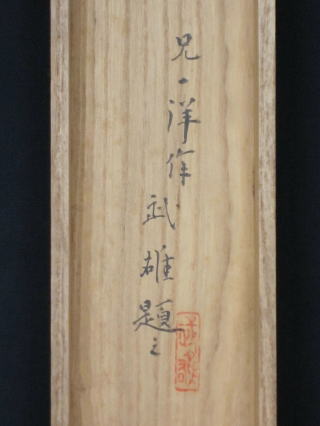 兄一洋作
武雄題之